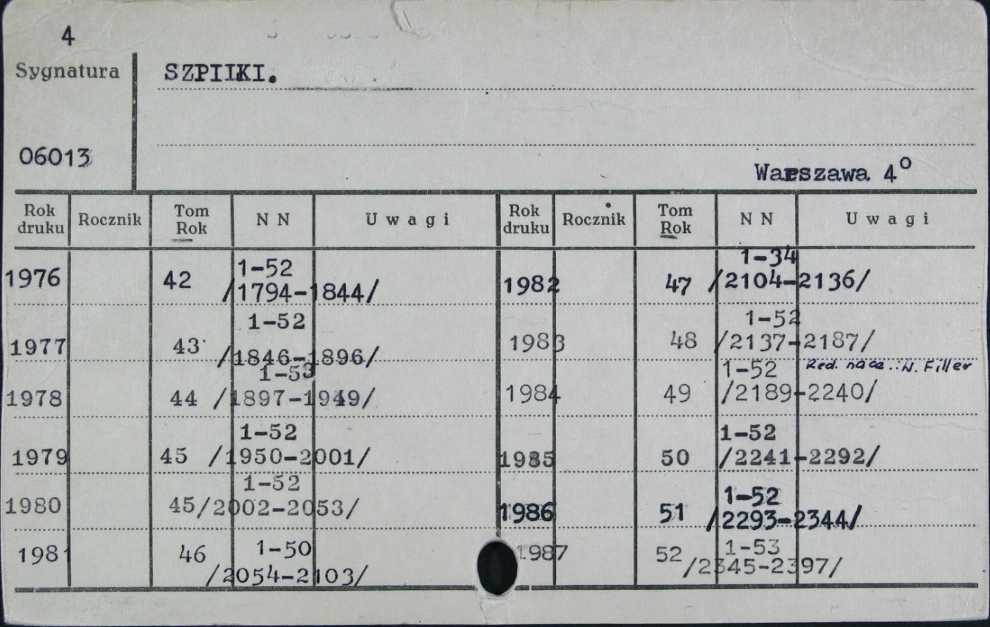 4
Sygnatura SZPILKI.
06013
Warszawa 4°
Rok druku Rocznik Tom Rok NN Uwagi Rok druku Rocznik Tom Rok NN Uwagi
1976 42 1-52 /1794-1844/
1977 43 1-52 /1846-1896/
1978 44 1-53 /1897-1949/
1979 45 1-52 /1950-2001/
1980 45 1-52 /2002-2053/
1981 46 1-50 /2054-2103/
1982 47 1-34 /2104-2136/
1983 48 1-52 /2137-2187/
1984 49 1-52 /2189-2240/ Red. nacz.: W. Filler
1985 50 1-52 /2241-2292/
1986 51 1-52 /2293-2344/
1987 52 1-53 /2345-2397/